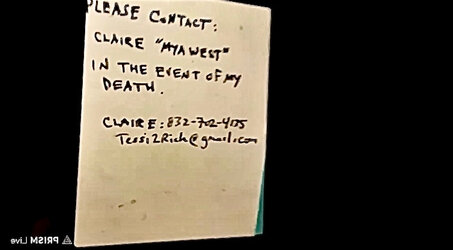 PLEASE CONTACT:
CLAIRE "MYA WEST"
IN THE EVENT OF MY
DEATH.
CLAIRE: 832-702-4175
Tessi2Rick@gmail.com
PRISM Live